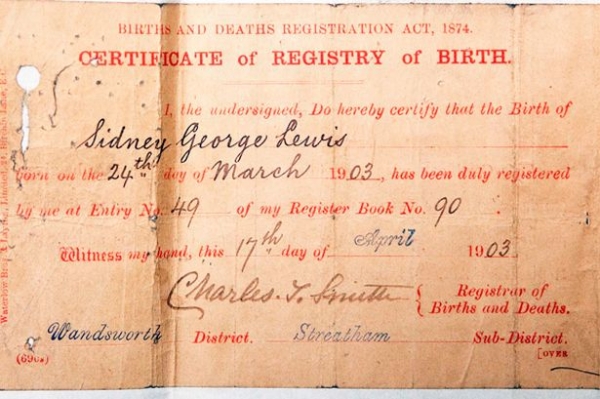 BIRTHS AND DEATHS REGISTRATION ACT, 1874.
CERTIFICATE of REGISTRY of BIRTH.
I, the undersigned, Do hereby certify that the Birth of
Sidney George Lewis
born on the 24th day of March 1903, has been duly registered
by me at Entry No. 49 of my Register Book No. 90.
Witness my hand, this 17th day of April 1903.
Charles T. Smith { Registrar of
Births and Deaths.
Wandsworth District. Streatham Sub-District.
(690s) [OVER
Waterlow Bros. & Layton, Limited, Birchin Lane, E.C.